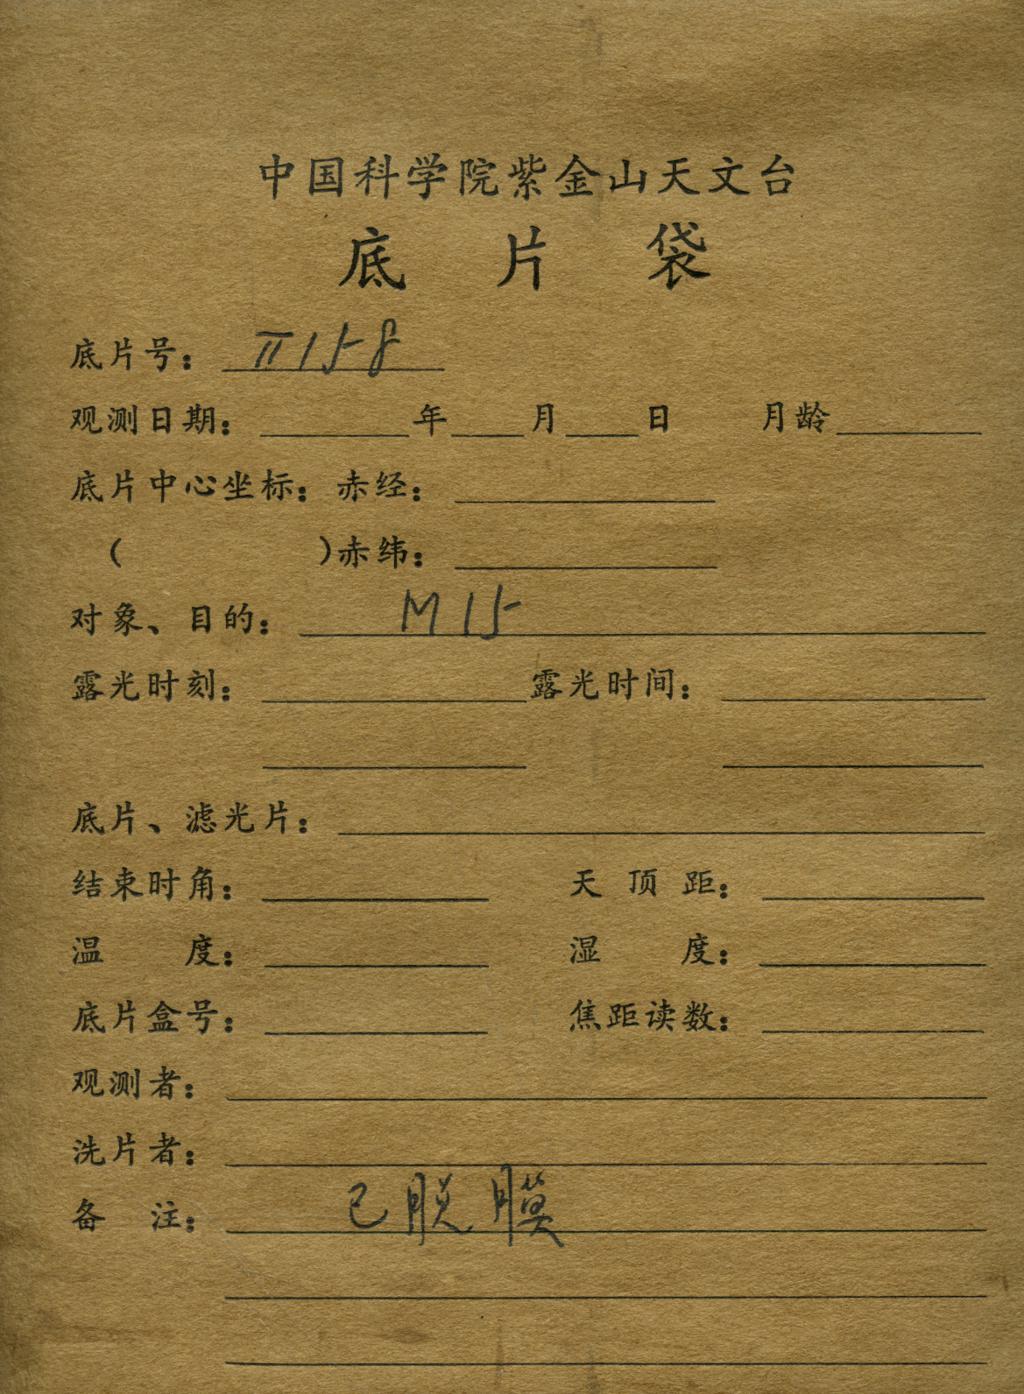 中国科学院紫金山天文台
底片袋
底片号: π158
观测日期: 年 月 日 月龄
底片中心坐标: 赤经:
( )赤纬:
对象、目的: M15
露光时刻: 露光时间:
底片、滤光片:
结束时角: 天顶距:
温度: 湿度:
底片盒号: 焦距读数:
观测者:
洗片者:
备注: 已脱膜